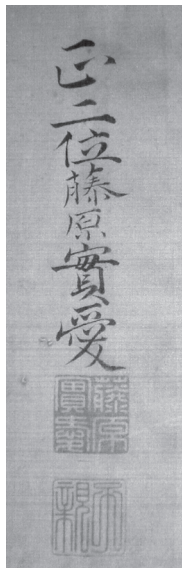 正二位藤原實愛
藤原
實愛